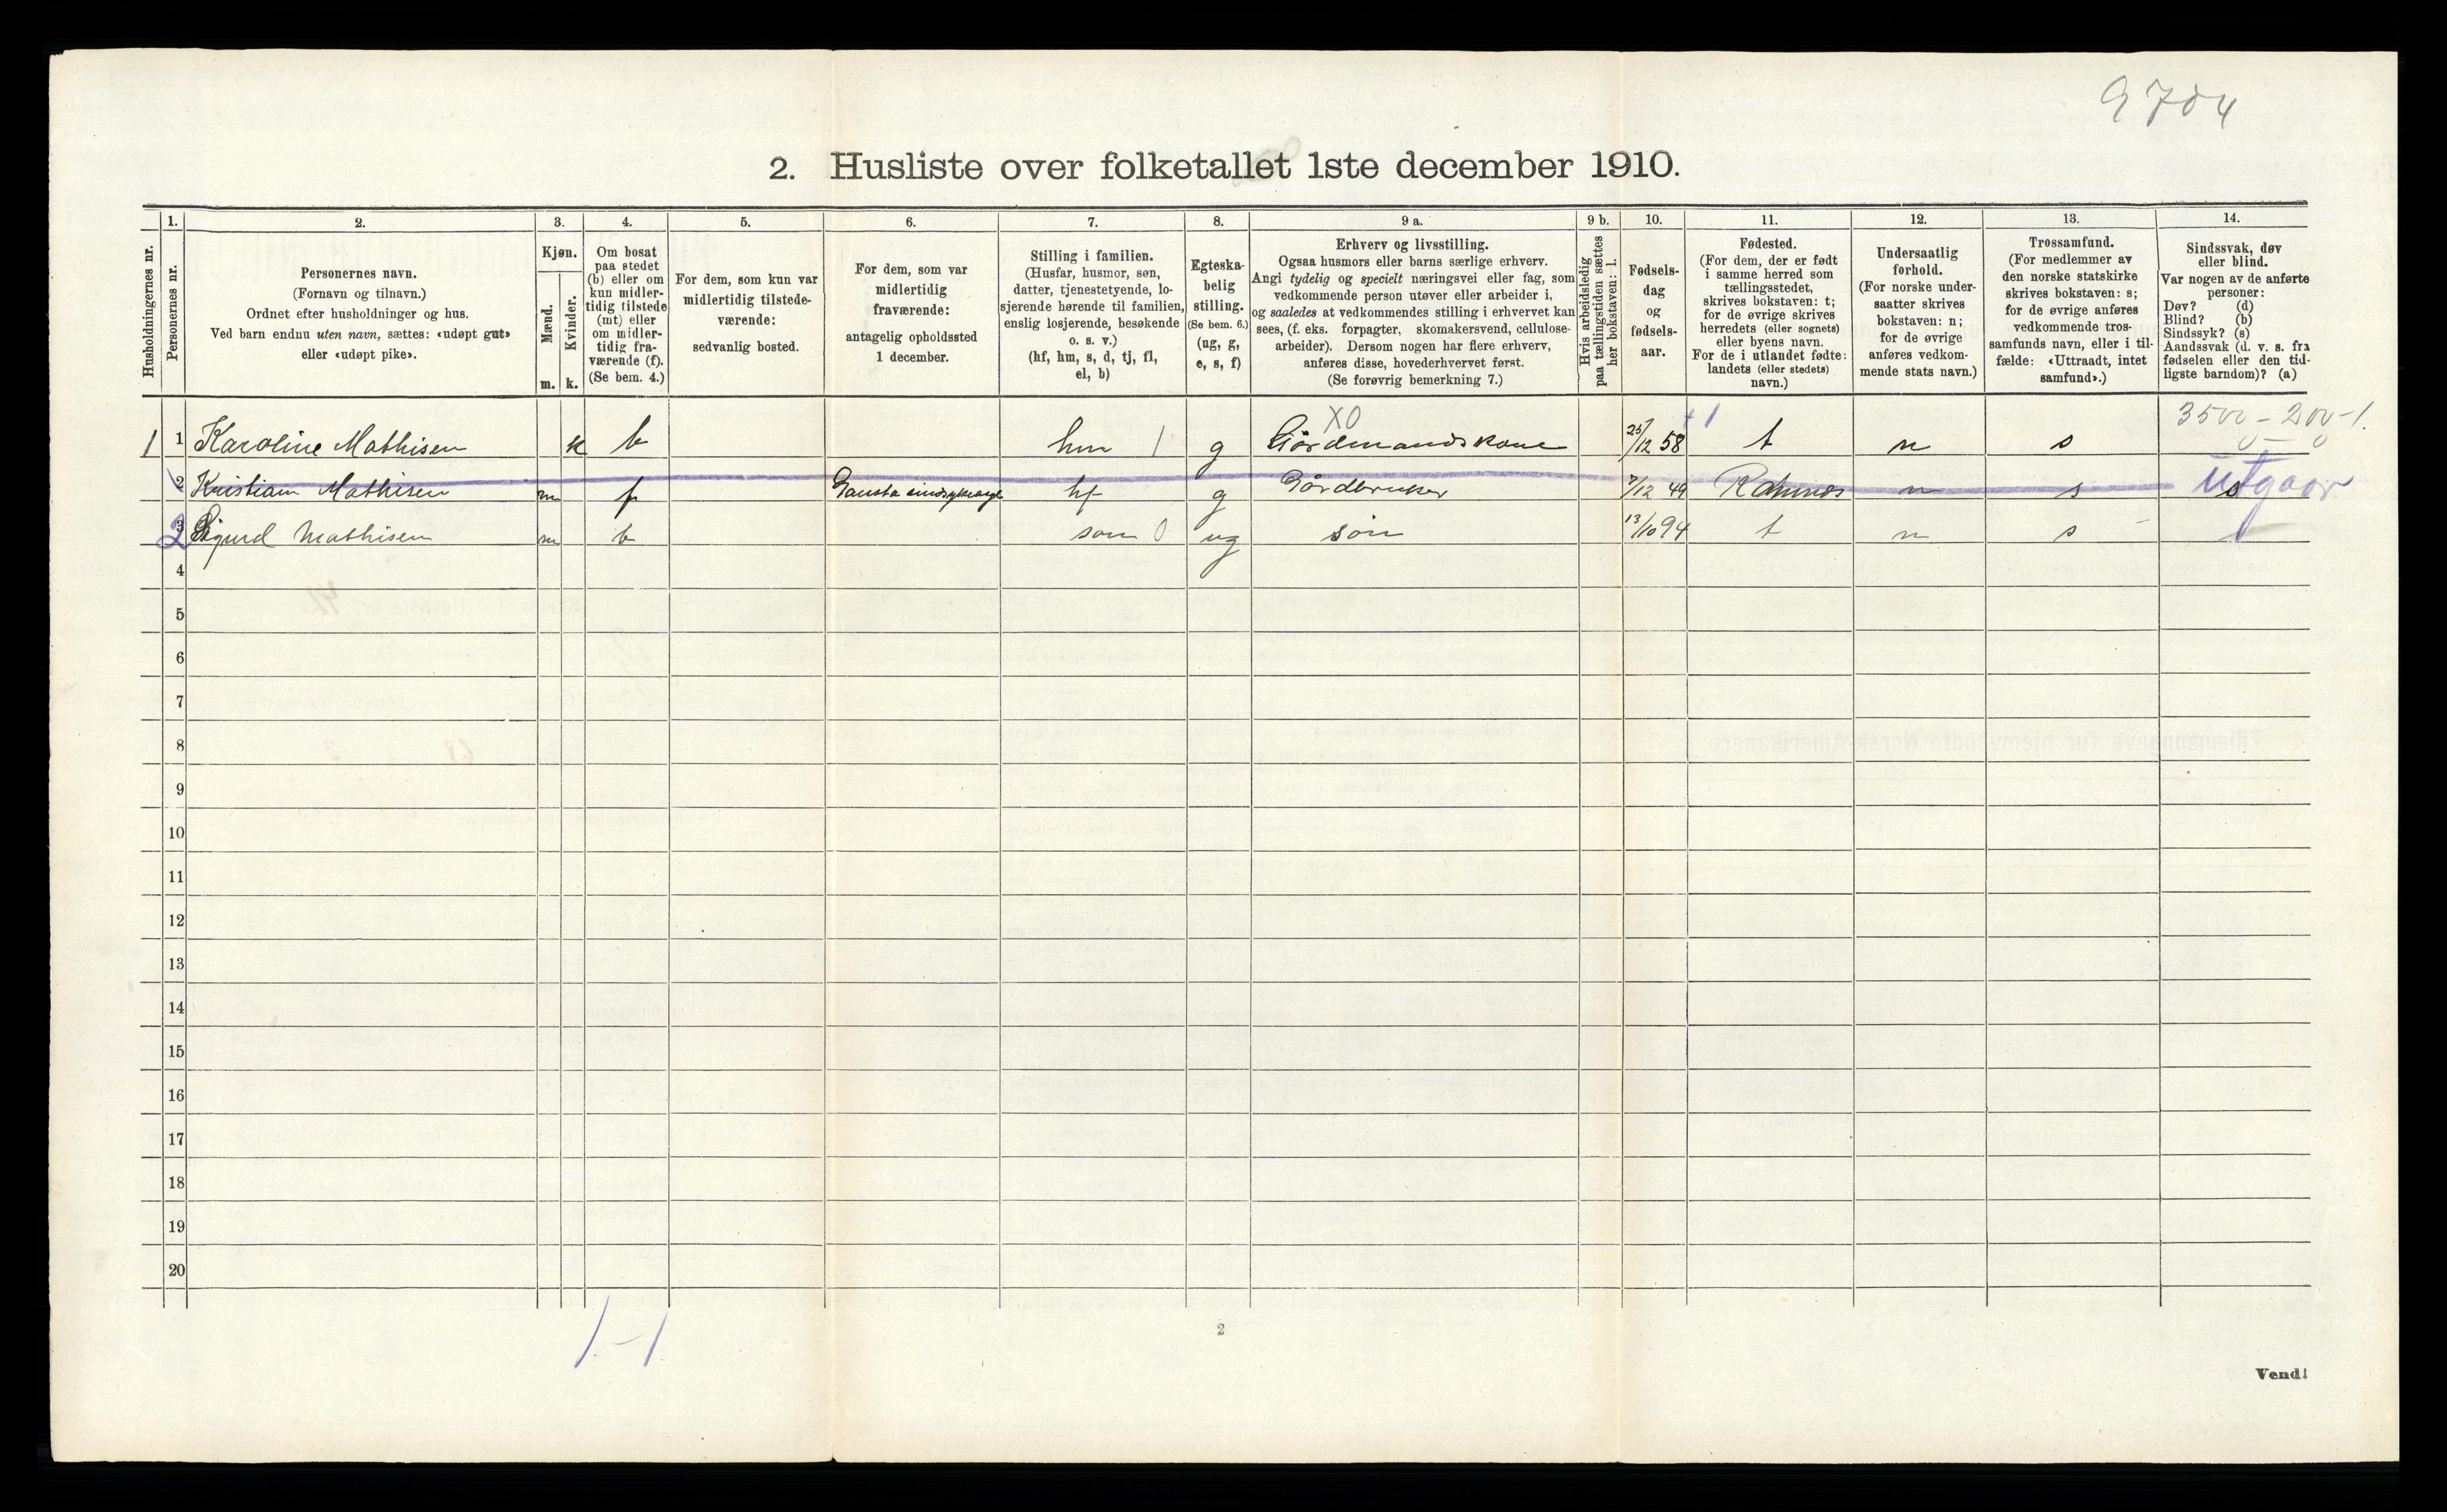 9704
2. Husliste over folketallet 1ste december 1910.
Husholdningernes nr.
1.
Personernes nr.
2.
Personernes navn.
(Fornavn og tilnavn.)
Ordnet efter husholdninger og hus.
Ved barn endnu uten navn, sættes: «udøpt gut»
eller «udøpt pike».
3.
Kjøn.
Mænd.
Kvinder.
m. k.
4.
Om bosat
paa stedet
(b) eller om
kun midler-
tidig tilstede
(mt) eller
om midler-
tidig fra-
værende (f).
(Se bem. 4.)
5.
For dem, som kun var
midlertidig tilstede-
værende:
sedvanlig bosted.
6.
For dem, som var
midlertidig
fraværende:
antagelig opholdssted
1 december.
7.
Stilling i familien.
(Husfar, husmor, søn,
datter, tjenestetyende, lo-
sjerende hørende til familien,
enslig losjerende, besøkende
o. s. v.)
(hf, hm, s, d, tj, fl,
el, b)
8.
Egteska-
belig
stilling.
(Se bem. 6.)
(ug, g,
e, s, f)
9 a.
Erhverv og livsstilling.
Ogsaa husmors eller barns særlige erhverv.
Angi tydelig og specielt næringsvei eller fag, som
vedkommende person utøver eller arbeider i,
og saaledes at vedkommendes stilling i erhvervet kan
sees, (f. eks. forpagter, skomakersvend, cellulose-
arbeider). Dersom nogen har flere erhverv,
anføres disse, hovederhvervet først.
(Se forøvrig bemerkning 7.)
9 b.
Hvis arbeidsledig
paa tællingstiden sættes
her bokstaven: l.
10.
Fødsels-
dag
og
fødsels-
aar.
11.
Fødested.
(For dem, der er født
i samme herred som
tællingsstedet,
skrives bokstaven: t;
for de øvrige skrives
herredets (eller sognets)
eller byens navn.
For de i utlandet fødte:
landets (eller stedets)
navn.)
12.
Undersaatlig
forhold.
(For norske under-
saatter skrives
bokstaven: n;
for de øvrige
anføres vedkom-
mende stats navn.)
13.
Trossamfund.
(For medlemmer av
den norske statskirke
skrives bokstaven: s;
for de øvrige anføres
vedkommende tros-
samfunds navn, eller i til-
fælde: «Uttraadt, intet
samfund».)
14.
Sindssvak, døv
eller blind.
Var nogen av de anførte
personer:
Døv? (d)
Blind? (b)
Sindssyk? (s)
Aandssvak (d. v. s. fra
fødselen eller den tid-
ligste barndom)? (a)
X0 +1 3500 - 200 - 1.
1 1 Karoline Mathisen k b hm 1 g Gårdmandskone 25/12 58 t n s
2 Kristian Mathisen m f Gausta sindsykeasyl hf g Gårdbruker 7/12 49 n s s utgaar
2 3 Sigurd Mathisen m b søn 0 ug søn 13/10 94 t n s
4
5
6
7
8
9
10
11
12
13
14
15
16
17
18
19
20
1 - 1
2
Vend!